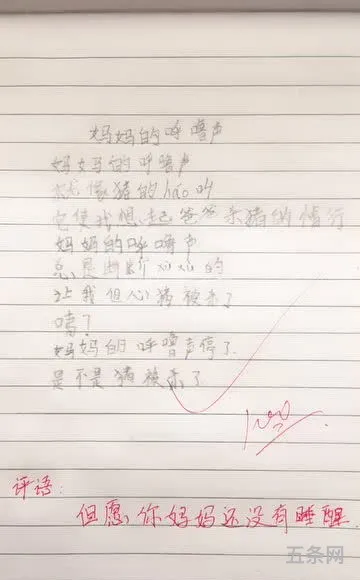 妈妈的呼噜声
妈妈的呼噜声
就像猪的hāo叫
它使我想起爸爸杀猪的情行
妈妈的呼噜声
总是断断xùxù的
让我但心猪被杀了
嘻？
妈妈的呼噜声停了
是不是猪被杀了
100
评语：
但愿你妈妈还没有睡醒.
五条网